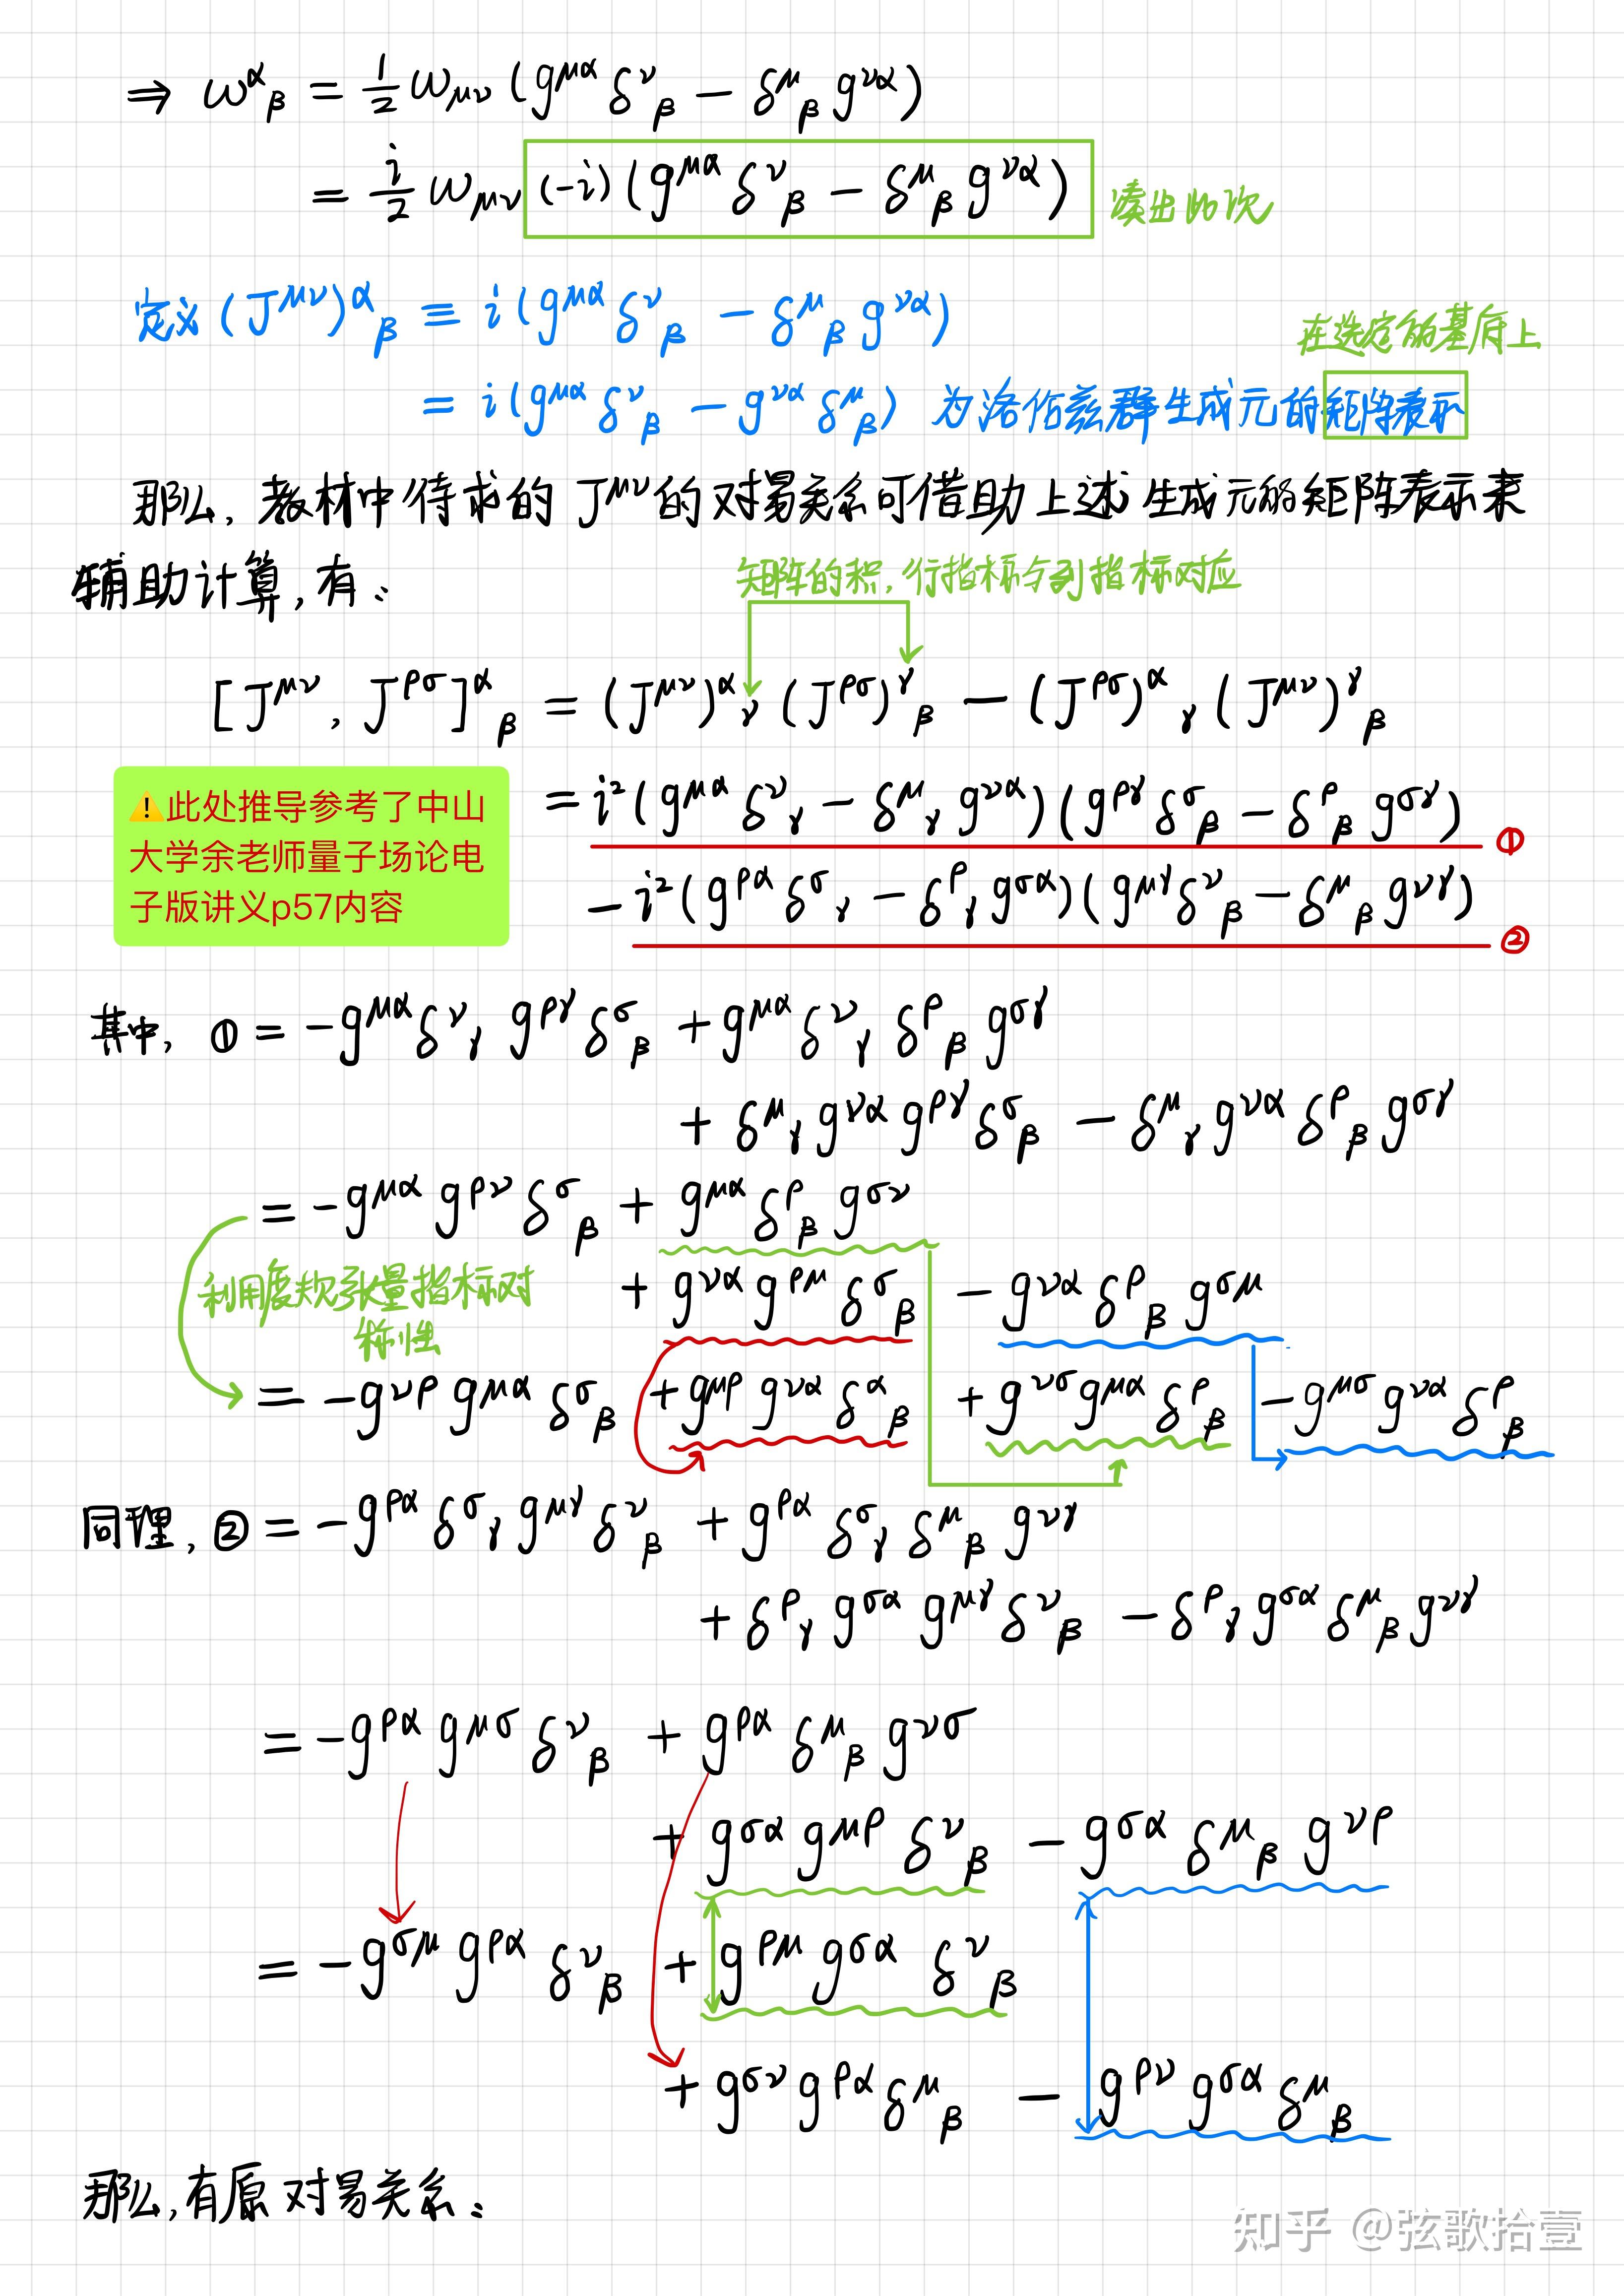 ⇒ ω^α_β = 1/2 ω_μν (g^μα δ^ν_β − δ^μ_β g^να)
= i/2 ω_μν (-i)(g^μα δ^ν_β − δ^μ_β g^να) 凑出此次
定义 (J^μν)^α_β ≡ i(g^μα δ^ν_β − δ^μ_β g^να)
在选定的基底上
= i(g^μα δ^ν_β − g^να δ^μ_β) 为洛伦兹群生成元的矩阵表示
那么, 教材中待求的 J^μν 的对易关系可借助上述生成元的矩阵表示来
辅助计算, 有:
矩阵的积, 行指标与列指标对应
[J^μν, J^ρσ]^α_β = (J^μν)^α_γ (J^ρσ)^γ_β − (J^ρσ)^α_γ (J^μν)^γ_β
⚠️此处推导参考了中山
大学余老师量子场论电
子版讲义p57内容
= i²(g^μα δ^ν_γ − δ^μ_γ g^να)(g^ργ δ^σ_β − δ^ρ_β g^σγ) ①
− i²(g^ρα δ^σ_γ − δ^ρ_γ g^σα)(g^μγ δ^ν_β − δ^μ_β g^νγ) ②
其中, ① = −g^μα δ^ν_γ g^ργ δ^σ_β + g^μα δ^ν_γ δ^ρ_β g^σγ
+ δ^μ_γ g^να g^ργ δ^σ_β − δ^μ_γ g^να δ^ρ_β g^σγ
= −g^μα g^ρν δ^σ_β + g^μα δ^ρ_β g^σν
+ g^να g^ρμ δ^σ_β − g^να δ^ρ_β g^σμ
利用度规张量指标对
称性
= −g^νρ g^μα δ^σ_β + g^μρ g^να δ^α_β + g^νσ g^μα δ^ρ_β − g^μσ g^να δ^ρ_β
同理, ② = −g^ρα δ^σ_γ g^μγ δ^ν_β + g^ρα δ^σ_γ δ^μ_β g^νγ
+ δ^ρ_γ g^σα g^μγ δ^ν_β − δ^ρ_γ g^σα δ^μ_β g^νγ
= −g^ρα g^μσ δ^ν_β + g^ρα δ^μ_β g^νσ
+ g^σα g^μρ δ^ν_β − g^σα δ^μ_β g^νρ
= −g^σμ g^ρα δ^ν_β + g^ρμ g^σα δ^ν_β
+ g^σν g^ρα δ^μ_β − g^ρν g^σα δ^μ_β
那么, 有原对易关系:
知乎 @弦歌拾壹